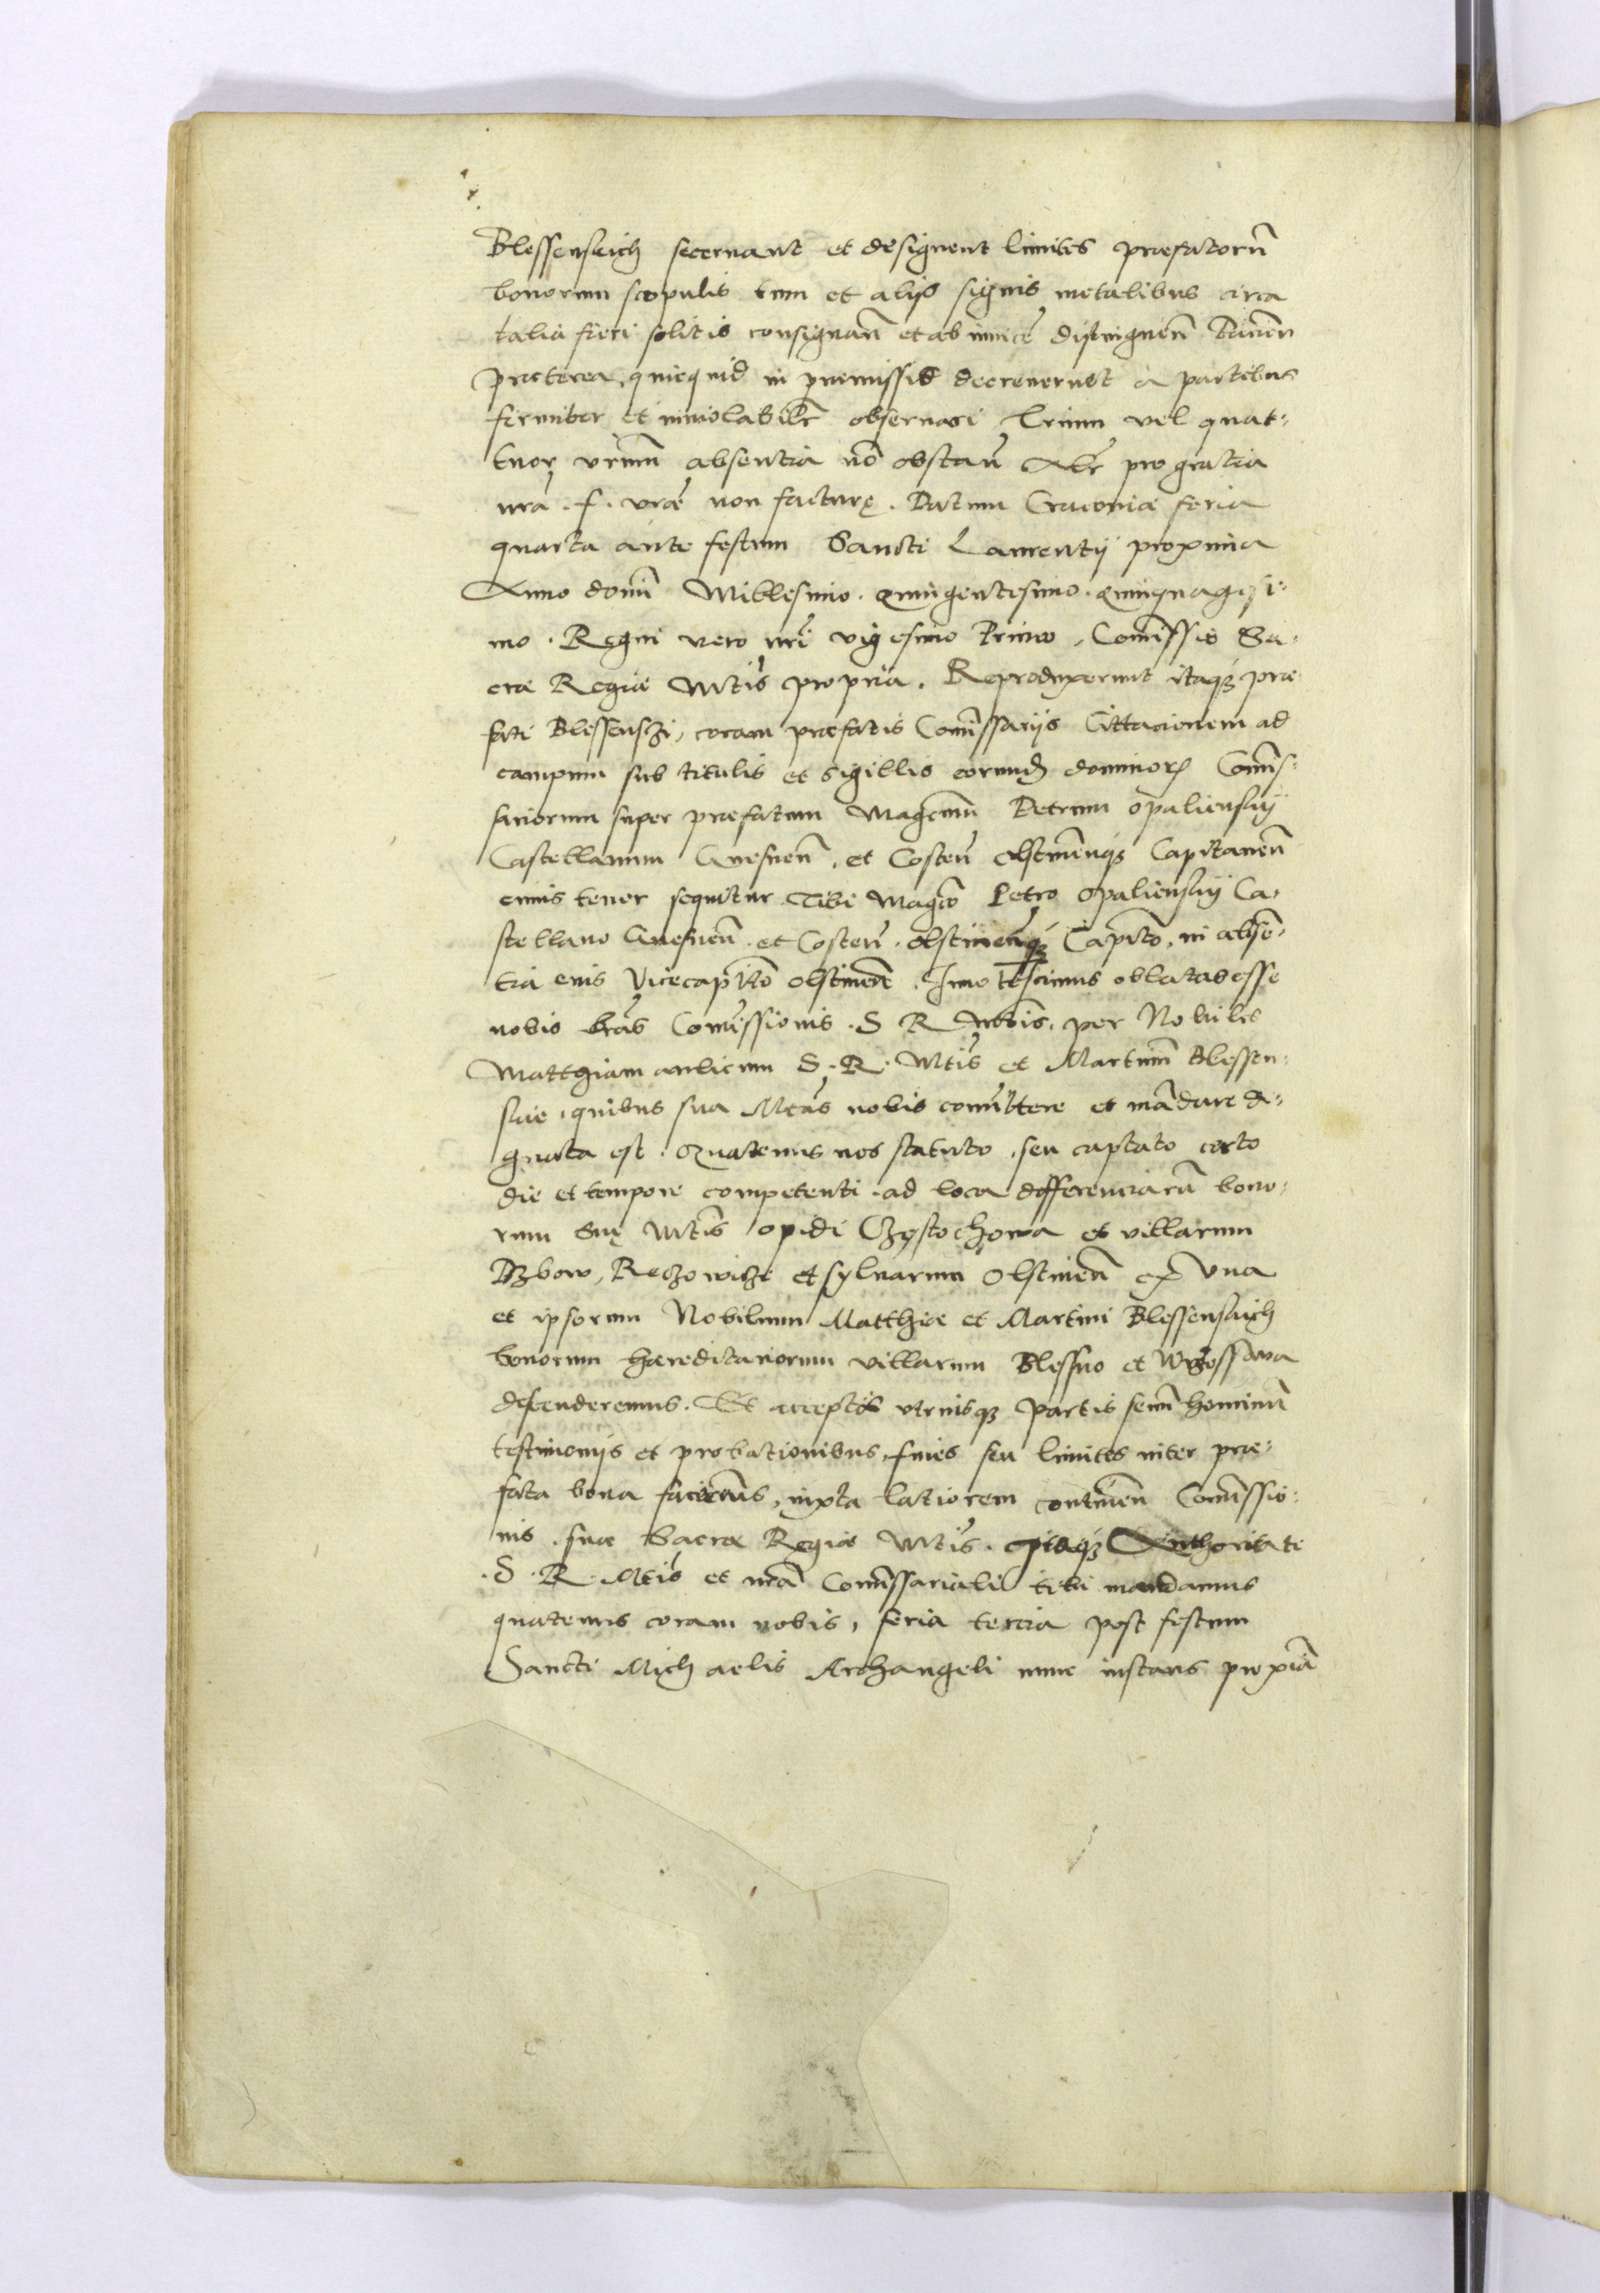 Blessenskich secernant et designent limites præfatorū
bonorum scopulis tum et alijs signis metalibus circa
talia fieri solitis consignan̄ et ab inuicē distinguen̄
præterea, quicquid in premissis decreuerint a partibus
firmiter et inuiolabilr̄ obseruari trium vel quat⸗
tuor vrūm absentia nō obstan̄ Alr̄ pro gratia
nrā . f . vrāe non facturę . Datum Cracouiæ feria
quarta ante festum Sancti Laurentij proxima
Anno domī Millesimo . quingentesimo . quinquagesi⸗
mo . Regni vero nrī vigesimo Primo , Comīssio Sa⸗
cræ Regiæ Mtis̄ propria . Reproduxerunt itaq₃ præ
fati Blessenszi , coram præfatis Comīssarijs Cittacionem ad
campum sub titulis et sigillis eorund dominorꝝ Comīs⸗
sariorum super præfatum Magcūm Petrum Opaliensky
Castellanum Gnesnen̄ , et Costen̄ Olstinēnq₃ Capitaneū
cuius tenor sequitur Tibi Magcō Petro Opaliensky Ca⸗
stellano Gnesnen̄ . et Costen̄ . Olstinēnq₃ Capitō , in absē⸗
tia eius Vicecapitō Olstinen̄ . Innotescimus oblatas esse
nobis lrās Comīssionis . S R Mtis̄ , per Nobiles
Matthiam aulicum S . R . Mtis̄ et Martinū Blessen⸗
skie , quibus sua Mtās nobis comīttere et mādare di⸗
gnata est . Quatenus nos statuto , seu captato certo
die et tempore competenti . ad loca differenciarū bono⸗
rum Suę Mtis̄ opidi Częstochowa et villarum
Dzbow , Reczowicze et syluarum Olstinen̄ ex vna
et ipsorum Nobilium Matthiæ et Martini Blessenskich
bonorum hæreditariorum villarum Blessno et Wrzossowa
descenderemus . Et acceptis vtriusq₃ partis senū hominū
testimonijs et probationibus , fines seu limites inter præ⸗
fata bona facerēus , iuxta latiorem continēn Comīssio⸗
nis . suæ Sacræ Regiæ Mtis̄ . Authoritate
. S . R . Mtis̄ et nrā Comīssariali tibi mandamus
quatenus coram nobis , feria tercia post festum
Sancti Michaelis Archangeli nunc instans proxiā